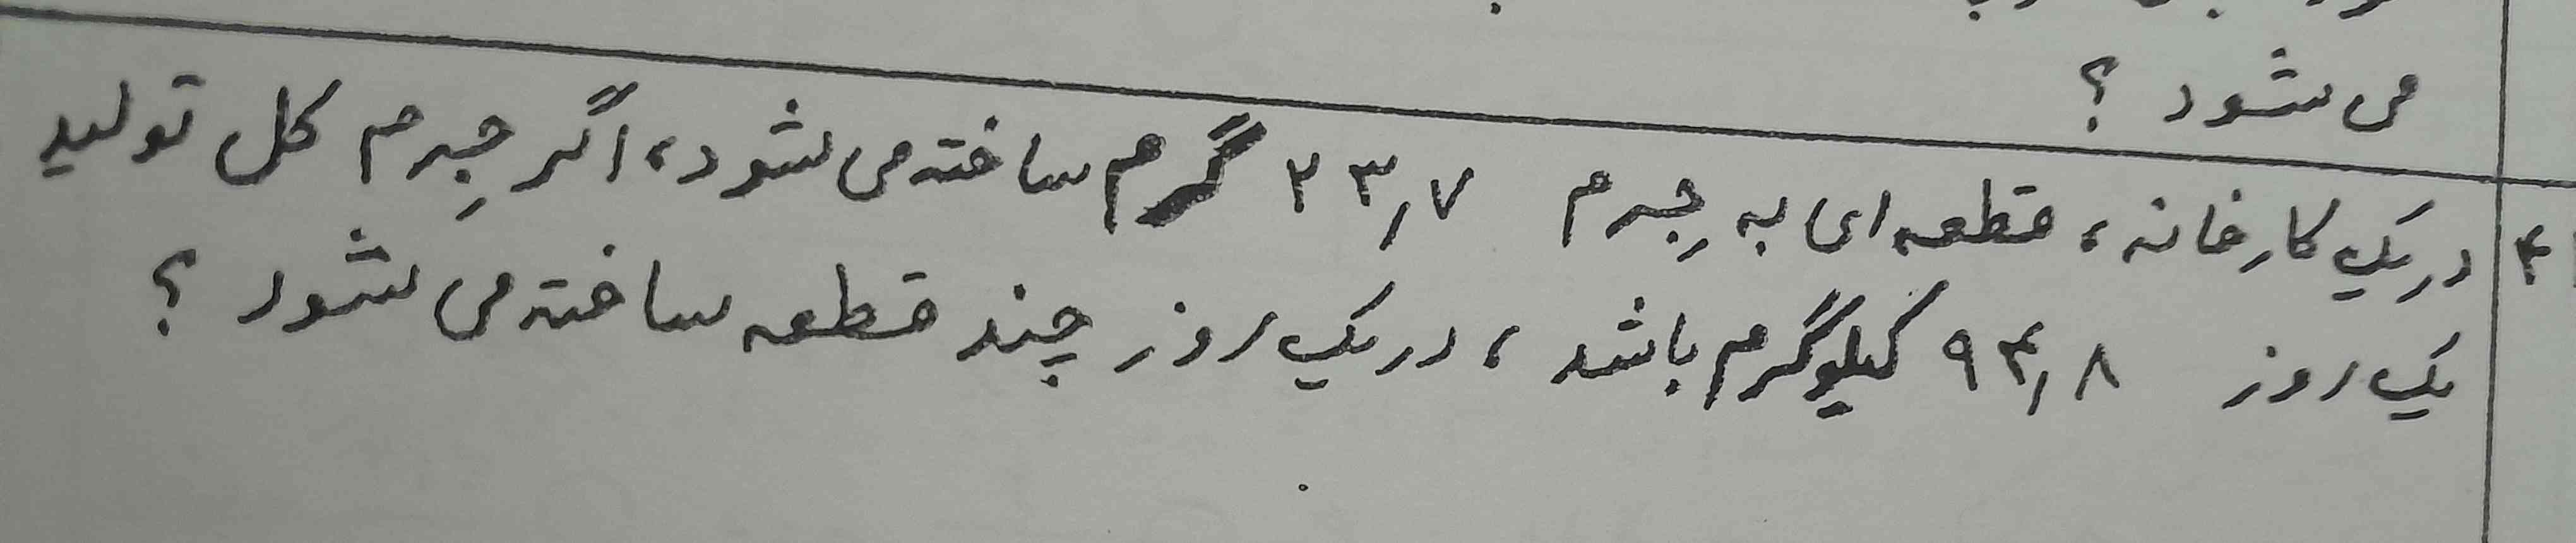 می شود ؟
۴ در یک کارخانه ، قطعه ای به جِرم ۲۳٫۷ گرم ساخته می شود ، اگر جِرم کل تولید
یک روز ۹۴٫۸ کیلوگرم باشد ، در یک روز چند قطعه ساخته می شود ؟